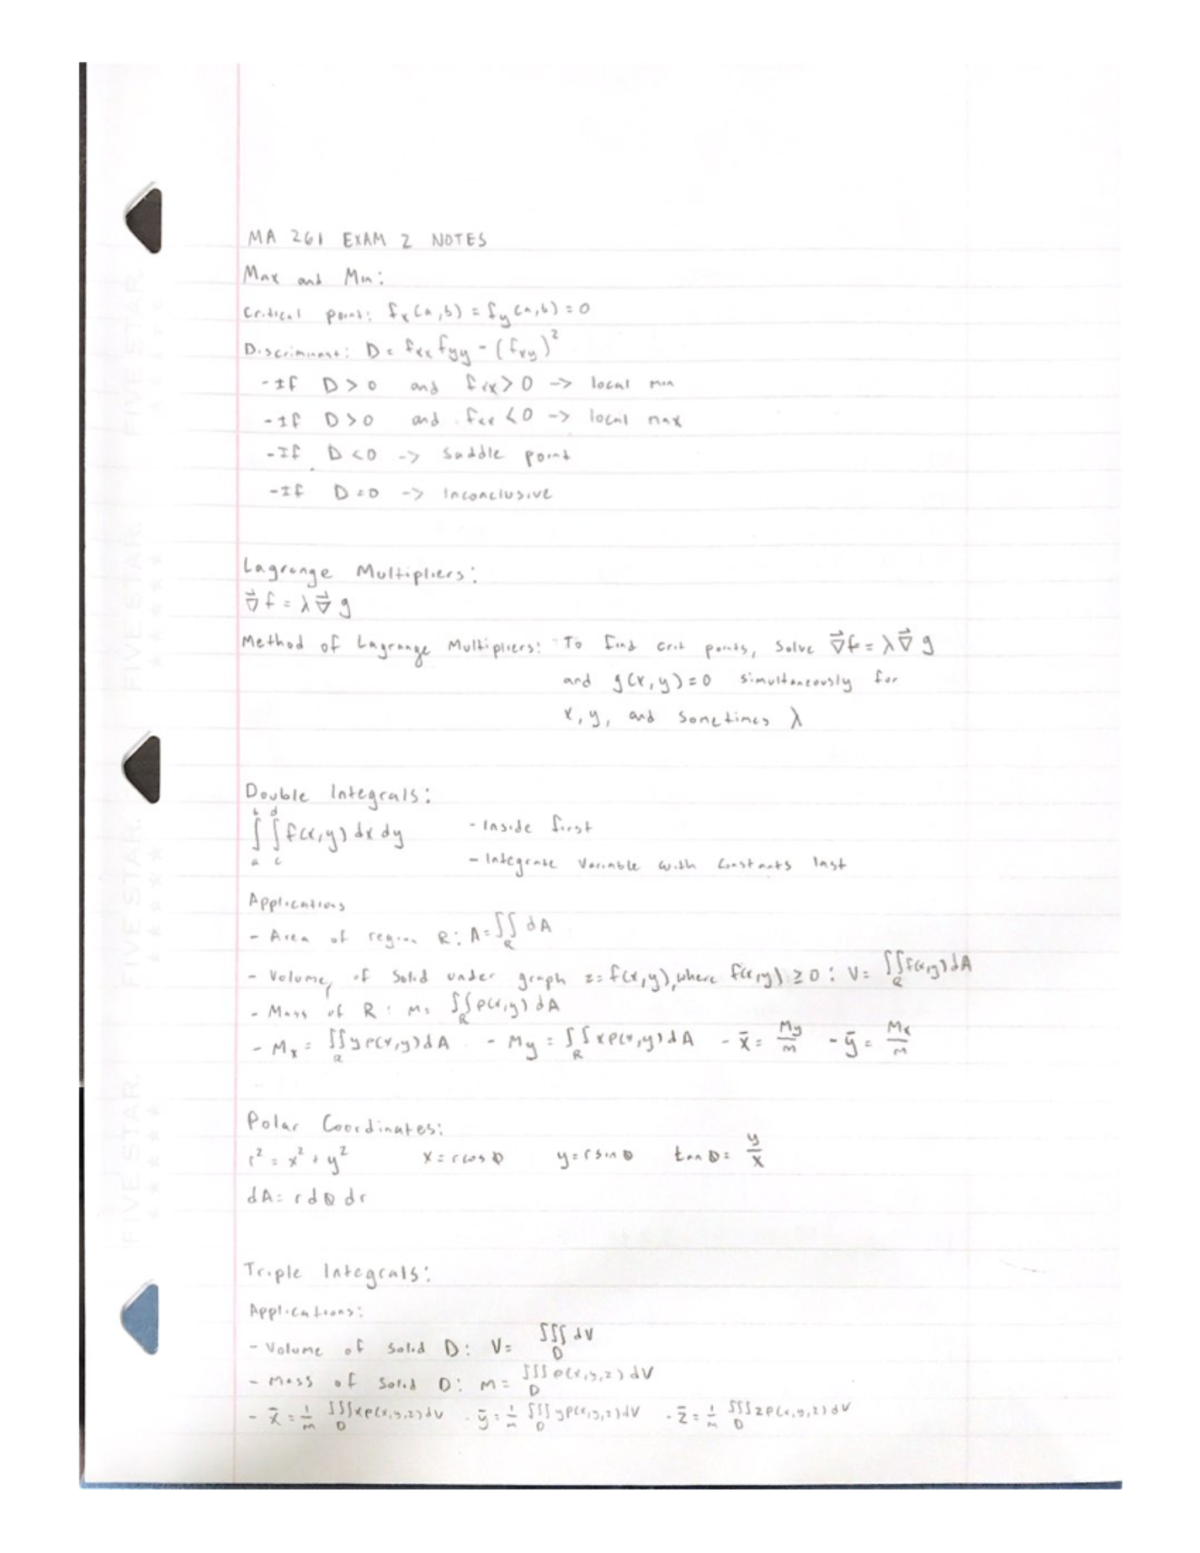 MA 261 EXAM 2 NOTES
Max and Min:
Critical point: fₓ(a,b) = f_y(a,b) = 0
Discriminant: D = fₓₓ f_yy - (fₓy)²
-If D > 0 and fₓₓ > 0 -> local min
-If D > 0 and fₓₓ < 0 -> local max
-If D < 0 -> Saddle point
-If D = 0 -> Inconclusive
Lagrange Multipliers:
∇⃗f = λ∇⃗g
Method of Lagrange Multipliers: To find crit points, solve ∇⃗f = λ∇⃗g
and g(x,y) = 0 simultaneously for
x, y, and sometimes λ
Double Integrals:
∫ₐᵇ ∫_c^d f(x,y) dx dy - Inside first
- Integrate variable with constants last
Applications
- Area of region R: A = ∬_R dA
- Volume of Solid under graph z = f(x,y), where f(x,y) ≥ 0: V = ∬_R f(x,y) dA
- Mass of R: m = ∬_R ρ(x,y) dA
- Mₓ = ∬_R yρ(x,y) dA - M_y = ∬_R xρ(x,y) dA - x̄ = M_y/m - ȳ = Mₓ/m
Polar Coordinates:
r² = x² + y² x = r cos θ y = r sin θ tan θ = y/x
dA = r dθ dr
Triple Integrals:
Applications:
- Volume of Solid D: V = ∭_D dV
- Mass of Solid D: m = ∭_D ρ(x,y,z) dV
- x̄ = 1/m ∭_D xρ(x,y,z) dV - ȳ = 1/m ∭_D yρ(x,y,z) dV - z̄ = 1/m ∭_D zρ(x,y,z) dV
FIVE STAR.
FIVE STAR.
FIVE STAR.
FIVE STAR.